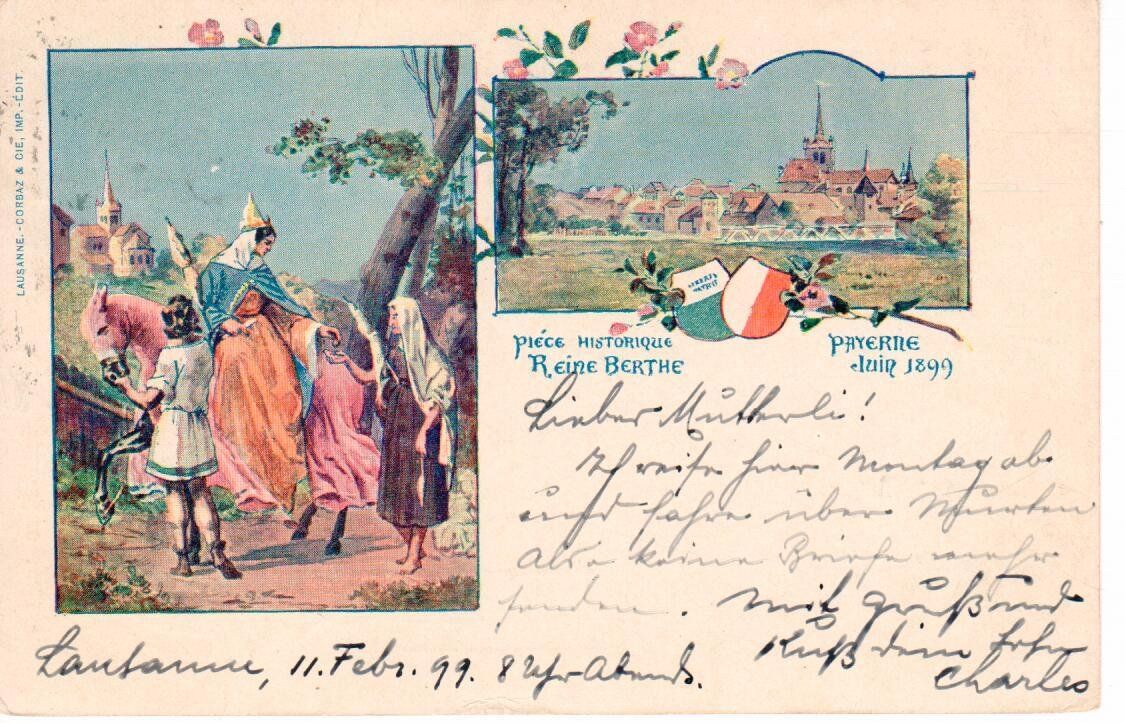 LAUSANNE.-CORBAZ & CIE, IMP.-ÉDIT.
LIBERTÉ
PATRIE
PIÉCE HISTORIQUE
REINE BERTHE
PAYERNE
JUIN 1899
Lieber Mutterli!
Ich reise hier Montag ab
und fahre über Murten
Also keine Briefe mehr
senden. Mit Gruß und
Kuß dein Sohn
Charles
Lausanne, 11. Febr. 99. 8 Uhr Abends.